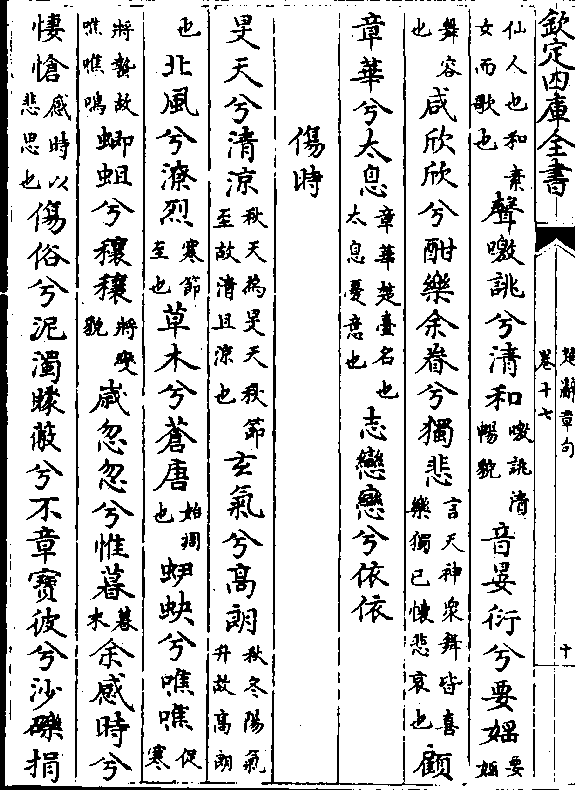 欽定四庫全書
楚辭章句
卷十七
十
仙人也和素
女而歌也
聲噭誂兮清和
噭誂清
暢貌
音晏衍兮要婬
要
婬
舞容
也
咸欣欣兮酣樂余眷兮獨悲
言天神衆舞皆喜
樂獨已懷悲哀也
顧
章華兮太息
章華楚臺名也
太息憂意也
志戀戀兮依依
傷時
旻天兮清涼
秋天為旻天秋節
至故清且涼也
玄氣兮高朗
秋冬陽氣
升故高朗
也
北風兮潦烈
寒節
至也
草木兮蒼唐
始凋
也
蛜蚗兮噍噍
促
寒
將蟄故
噍噍鳴
蝍蛆兮穰穰
將變
貌
歲忽忽兮惟暮
暮
末
余感時兮
悽愴
感時以
悲思也
傷俗兮泥濁矇蔽兮不章寶彼兮沙礫捐